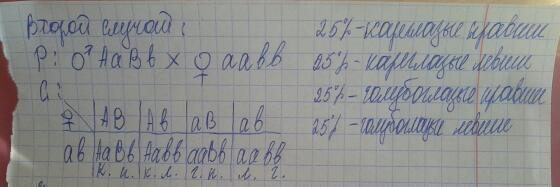 Второй случай:
P: ♂ АаВb x ♀ аавв
G:
♀ | АВ | Ав | аВ | ав
ав | АаВb | Аавв | ааВb | аавв
к. п. | к. л. | г. п. | л. г.
25%-кареглазые правши
25%-кареглазые левши
25%-голубоглазые правши
25%-голубоглазые левши